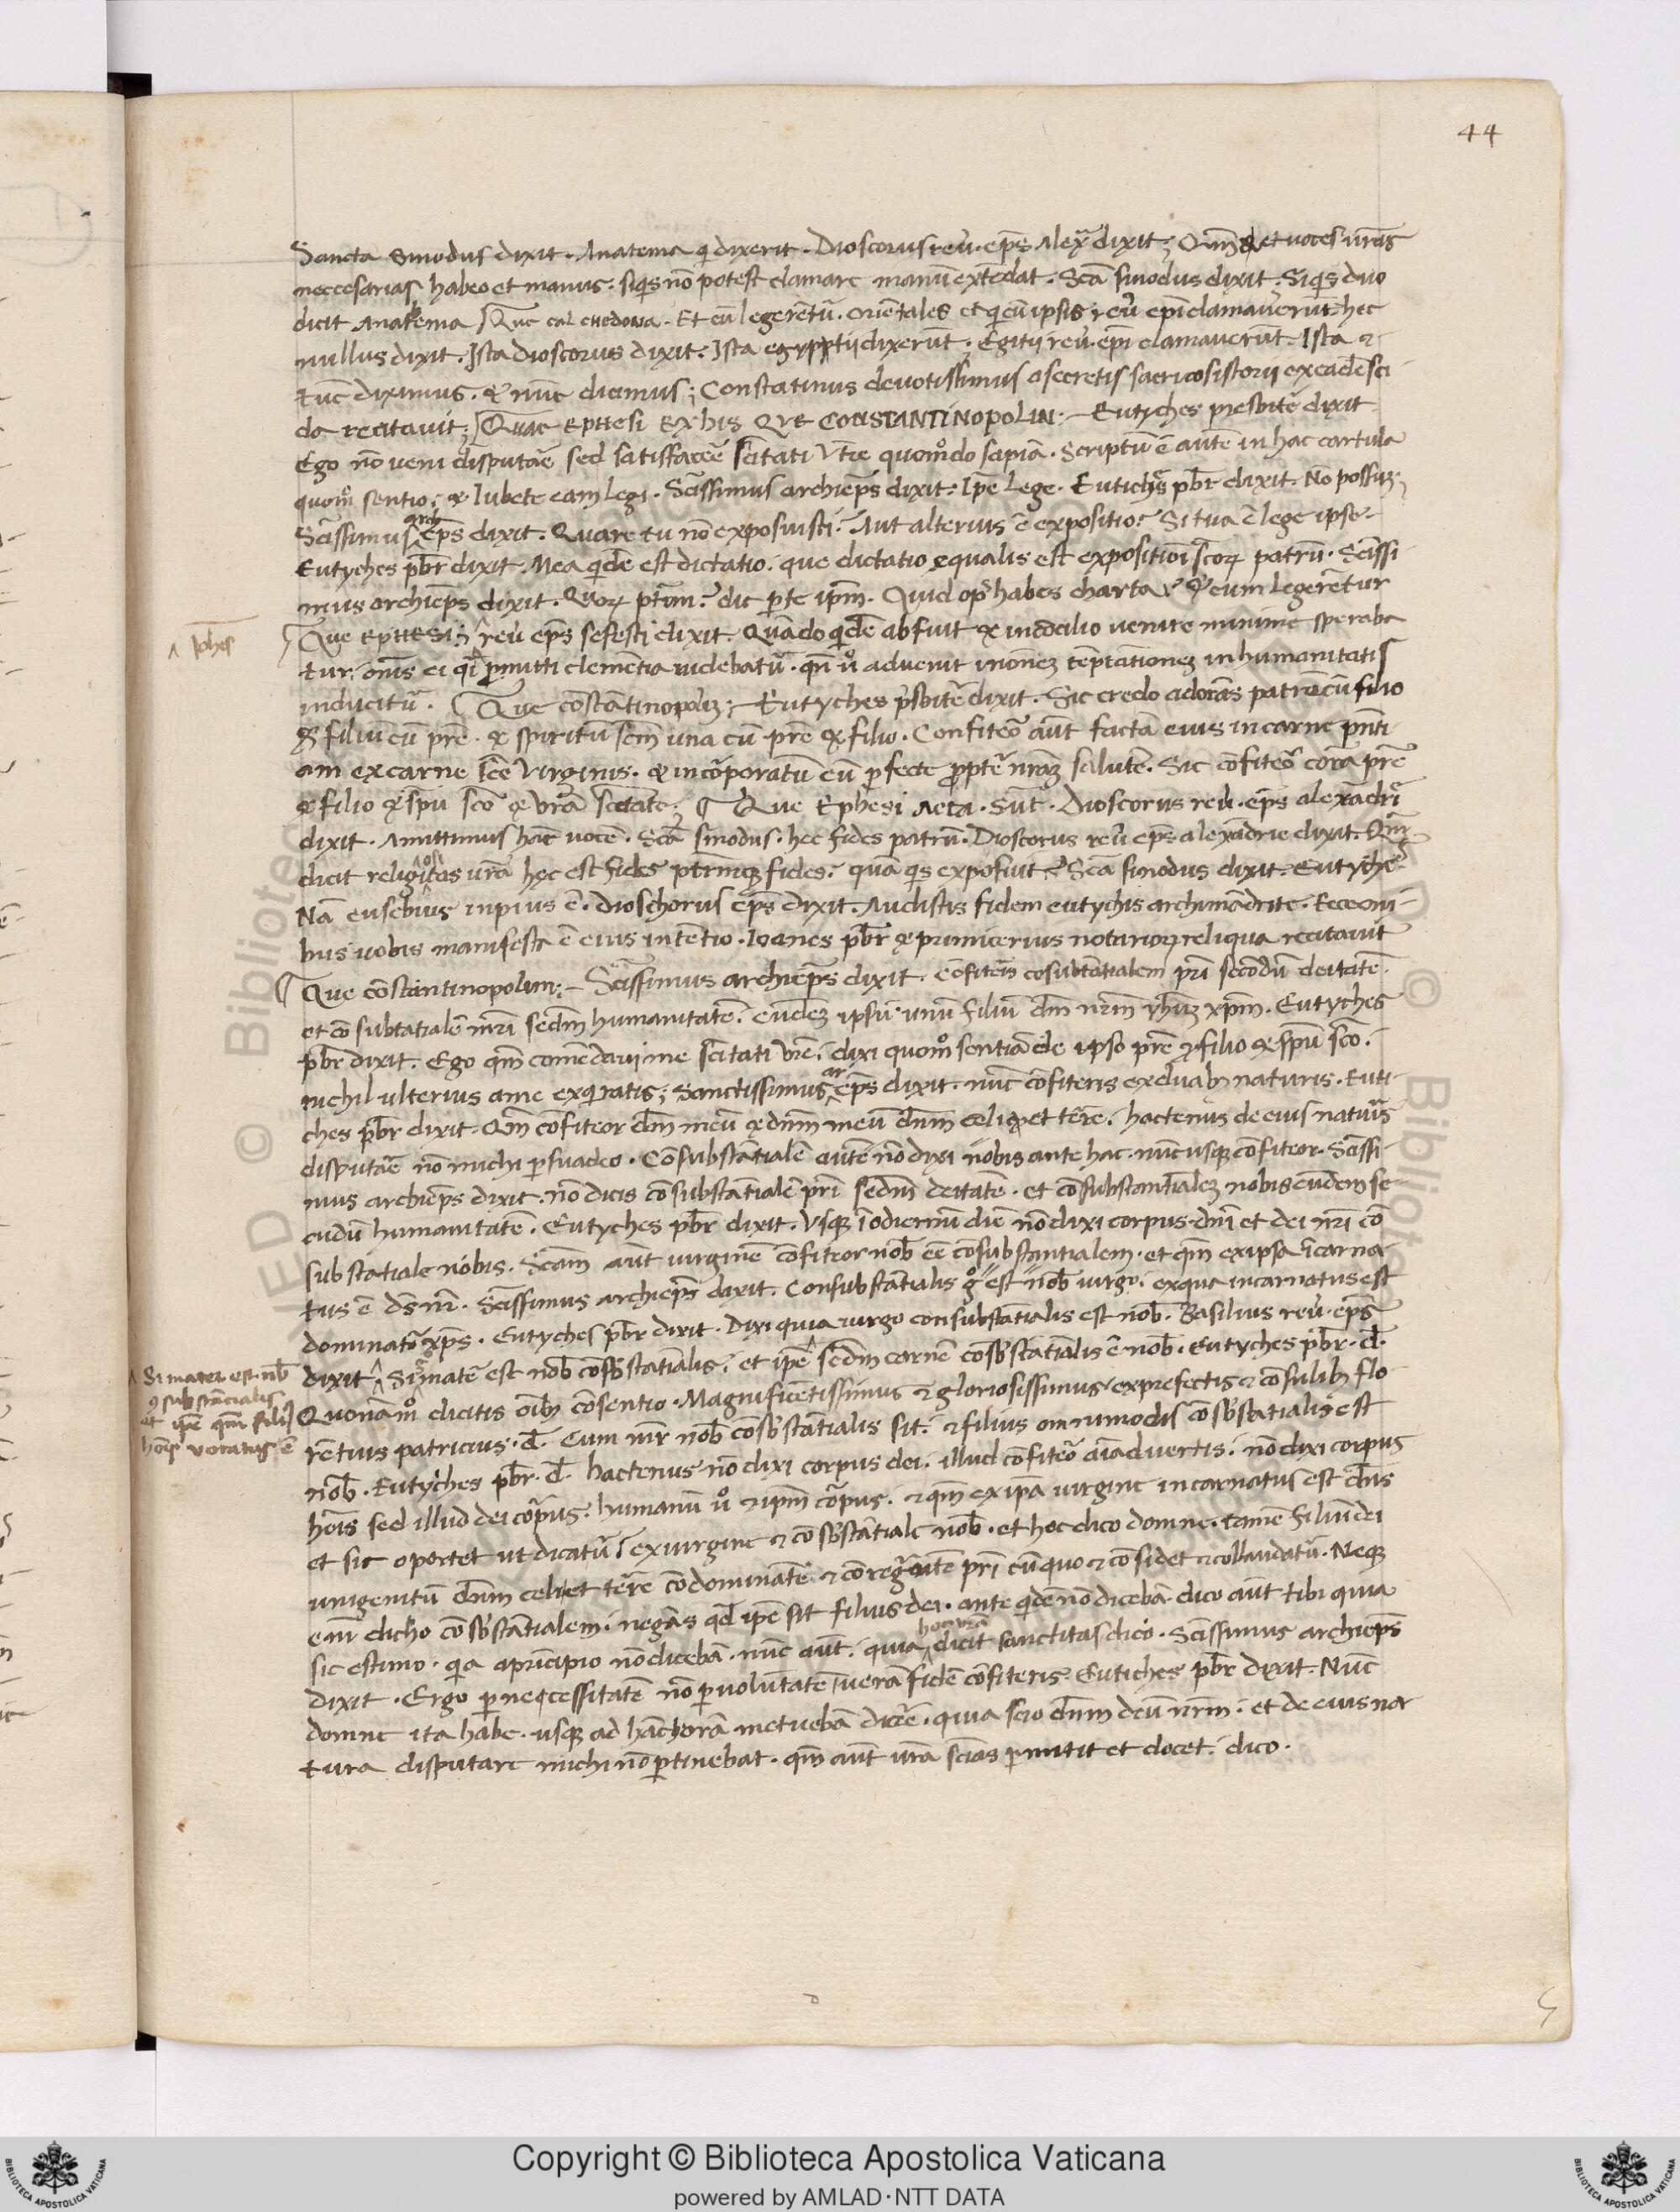 44
Sancta Sinodus dixit. Anatema qi dixerit. Dioscorus reu. eps Alex dixit; Qm et uoces uras
neccesarias habeo et manus: siqis no potest clamare manu extedat. Sca sinodus dixit. Siqis duo
dicit Anathema Que calchedona. Et cu legerentu. orientales et qi cu ipsis reu epi clamauerut hec
nullus dixit. Ista dioscorus dixit: Ista egypptii dixerut; Egitii reu. epi clamauerunt. Ista &
tuc diximus. & nunc dicimus; Constatinus deuotissimus a secretis sacri cosistorii ex eade sci
da recitauit; Quae Ephesi Ex his QVE CONSTANTINOPOLIN:– Eutyches presbite dixit
Ego no ueni disputae sed satisfacee scitati Vre quomodo sapia. Scriptu e aute in hac cartula
quomo sentio; & Iubete eam legi. Scissimus archieps dixit: Ipe lege. Eutiches pbr dixit. No possuz;
Scissimus arch eps dixit. Quare tu no exposuisti? Aut alterius e expositio? Si tua e lege ipse.
Eutyches pbr dixit. Mea qide est dictatio. que dictatio equalis est expositioi scor patru. Scissi
mus archieps dixit. Quor ptrum? dic p te ipm. Quid op habes charta & cum legerentur
Que EPHESI; reu eps sefesti dixit. Quado qide abfuit & incocilio uenire minime speraba
^ Iohes
tur. omis ei qi pmitti clementia uidebatu. qn uo aduenit inonez teptationez inhumanitatis
inducitu. Que constantinopoliz; – Eutyches psbite dixit. Sic credo adorans patre cu filio
& filiu cu pre. & spiritu scm una cu pre & filio. Confiteo aut facta eius in carne pnti
am ex carne sce Virginis. & incorporatu eu pfecte propte nraz salute. Sic confiteo cora pre
& filio & spu sco & vra scitate; Que Ephesi Acta. sut. Dioscorus reu. eps alexadri
dixit. Amittimus hac uoce. Sca sinodus. hec fides patru. Dioscorus reu eps alexadrie dixit. Qm
dicit religiositas ura hec est fides ptrmq fides? qua qis exposuit? Sca sinodus dixit. Eutyche
Na eusebius inpius e. dioschorus eps dixit. Audistis fidem eutychis archimadrite. Ecce oni
bus uobis manifesta e eius intentio. Ioanes pbr & primicerius notarior reliqua recitauit
Que constantinopolim; – Scissimus archieps dixit. confiteris cosubtatialem pri secondu deitate.
et cosubtatiale mri sedm humanitate. eudez ipsu unu filiu dm nrm yhuz xpm. Eutyches
pbr dixit. Ego qm comedaui me scitati vre. dixi quomo sentia de ipso pre & filio & spu sco.
nichil ulterius a me exqiratis; Sanctissimus ar eps dixit. nuc confiteris ex duab naturis. Euti
ches pbr dixit. Qm confiteor dm meu & dnm meu dnm celi et terre. hactenus de eius natura
disputae no michi psuadeo. Consubstantiale aute no dixi nobis ante hac. nunc usq confiteor. Scissi
mus archieps dixit. no dicis consubstatiale pri sedm deitate. et consubstantialez nobis eundem se
cudu humanitate. Eutyches pbr dixit. Vsq i odiernu die no dixi corpus dni et dei nri co
substatiale nobis. Scam aut uirgine confiteor nob ee consubstantialem. et qm ex ipsa icarna
tus e ds nr. Scissimus archieps dixit. Consubstantialis go est nob uirgo. ex qua incarnatus est
dominato xps. Eutyches pbr dixit. Dixi quia uirgo consubstatialis est nob. Basilius reu. eps
dixit ^ Si mate est nob consbstatialis. et ipe sedm carne cosbstatialis e nob. Eutyches pbr. d.
^ Si mater est nb
9substancialis
et ipe qm filij
hois vocatus e
Quonamo dicitis oib consentio. Magnificentissimus & gloriosissimus exprefectis & consulib flo
rentius patricius. d. Cum mr nob cosbstatialis sit. & filius omnimodis cosbstatialis est
nob. Eutyches pbr. d. hactenus no dixi corpus dei. illud confiteo aiaduertis. no dixi corpus
hois sed illud dei corpus. humanu uo & ipm corpus. & qm ex ipa uirgine incarnatus est dns
et sic oportet ut dicatu ex uirgine & cosbstantiale nob. et hoc dico domne. tame filiu dei
unigenitu dnm celi et terre condominate & coregnate pri cu quo & considet & collaudatu. Neq
enr dicho consbstantialem. negans qd ipe sit filius dei. ante qide no diceba. dico aut tibi quia
sic estimo. qia a principio no diceba. nuc aut. quia hoc ura dicit sanctitas dico. Scissimus archieps
dixit. Ergo p neccessitate no p uoluntate uera fide confiteris. Eutiches pbr dixit. Nuc
domne ita habe. usq ad hanc hora metueba dicere. quia scio dnm deu nrm. et de eius na
tura disputare michi no ptinebat. qm aut ura scitas pmitit et docet. dico.
Copyright © Biblioteca Apostolica Vaticana
powered by AMLAD·NTT DATA